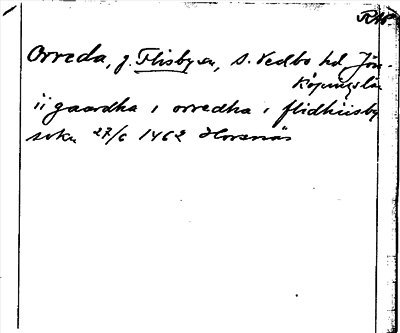 Orreda, g. Flisby sn, S. Vedbo hd, Jön-
köpings län
ii gaardha i orredha i flidhiisby
sokn 27/6 1462 Horsnäs